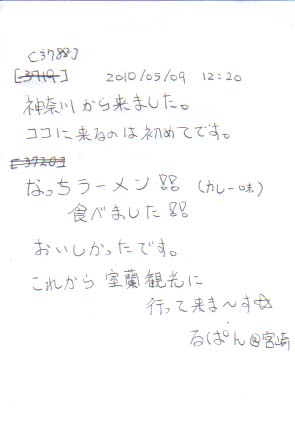 [3788]
[3719] 2010/05/09 12:20
神奈川から来ました。
ココに来るのは初めてです。
[3720]
なっちラーメン!! (カレー味)
食べました!!
おいしかったです。
これから室蘭観光に
行って来ま〜す☆
るぱん@宮崎